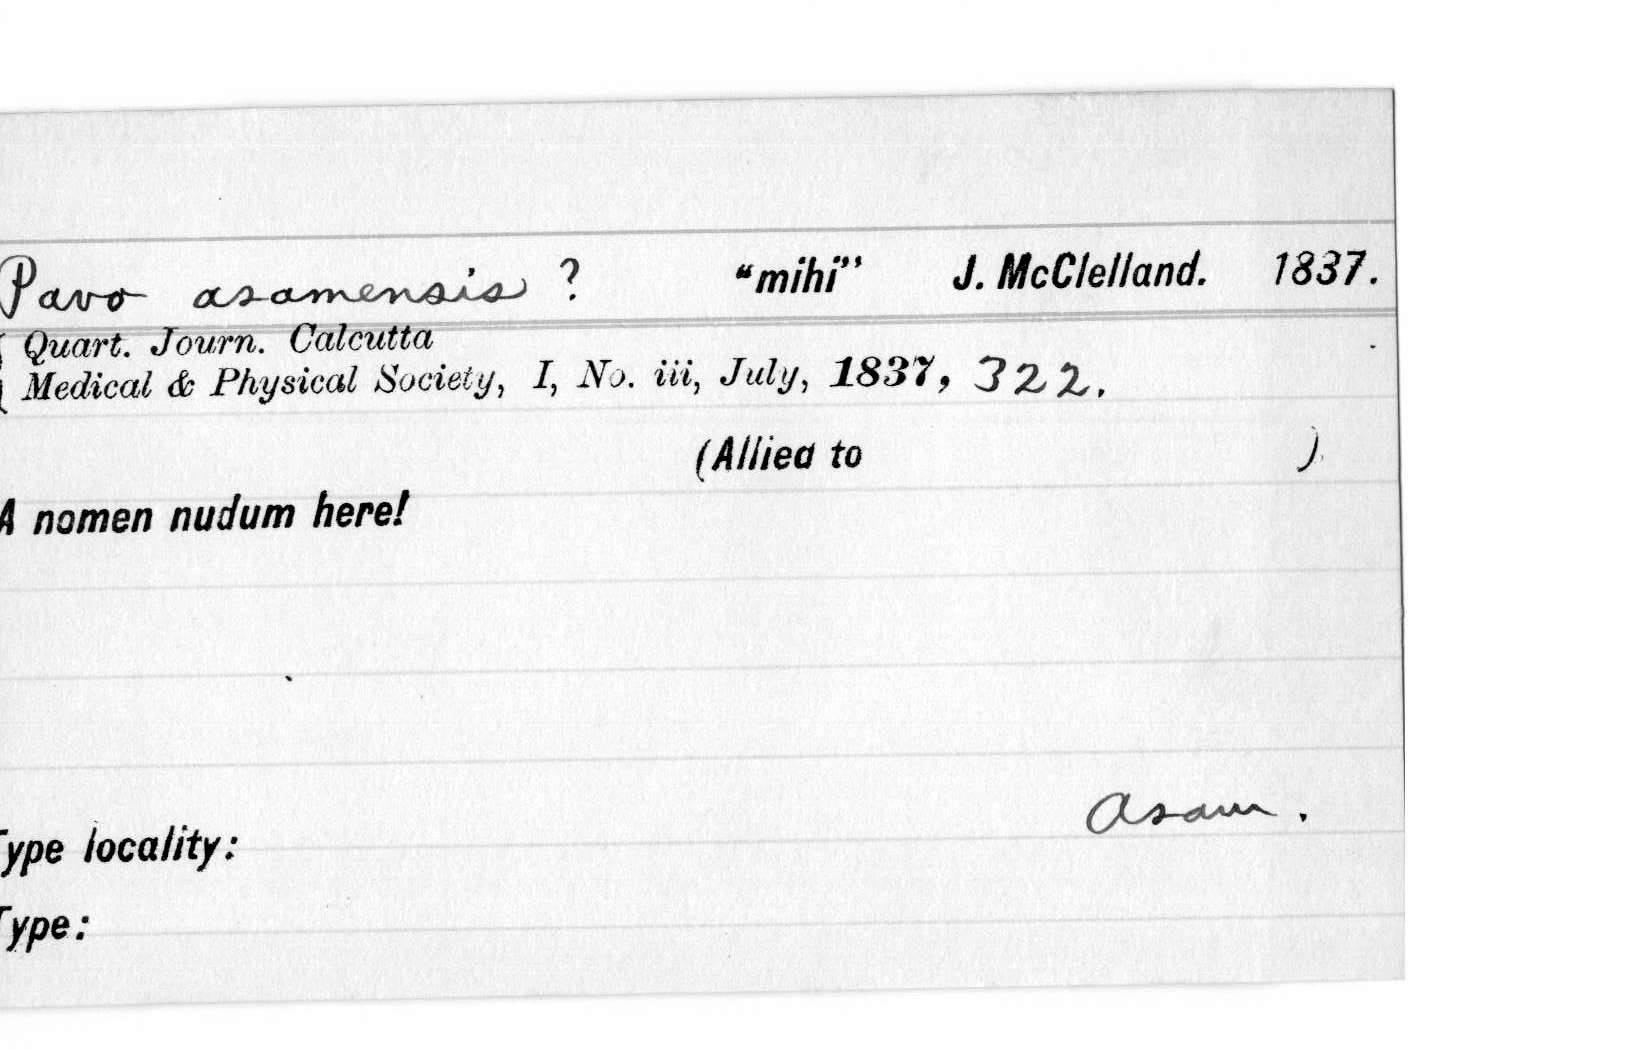 Pavo asamensis ? "mihi" J. McClelland. 1837.
Quart. Journ. Calcutta
Medical & Physical Society, I, No. iii, July, 1837, 322.
(Allied to )
A nomen nudum here!
Asam.
Type locality:
Type: